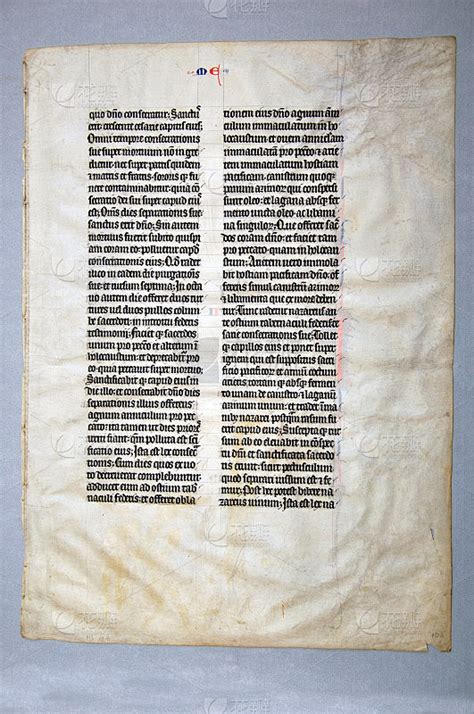 M E
quo dño consecratur; Sanctus
erit crescente cesarie capitis eius;
Omni tempore consecrationis
sue super mortuum nõ in gre
dietur: nec super patris quidem
⁊ matris et fratris sororis qȝ fu
nere contaminabitur: quia cõ
secratio dei sui super caput eius
est; Omnis dies separationis sue
sanctus erit dño. Sin autem
mortuus fuerit subito quispi
am coram eo: polluetur caput
consecrationis eius; Quod rade
t ilico in eadem die purgationis
sue et rursum septima; In octa
uo autem die offeret duos turtu
res uel duos pullos columbe
sacerdoti: in introitu federis
testimonij; Faciet qȝ sacerdos
unum pro peccato et alterum in
holocaustum: et deprecabitur pro
eo quia peccauit super mortuo;
Sanctificabit qȝ caput eius in
die illo: et consecrabit dño dies
separationis illius offerens
agnum anniculum pro peccato:
ita tamen ut dies priores
irriti fiant: qm̃ polluta est scĩ
ficatio eius; Ista est lex consecr
tionis; Cum dies quos ex uo
to decreuerat complebuntur:
adducet eum ad ostium taber
naculi federis: et offeret obla
tionem eius dño agnum anni
culum immaculatum in ho
locaustum: et ouem anniculam
immaculatã pro peccato: ⁊ arie
tem immaculatum hostiam
pacificam: canistrum quoqȝ
panum azimorum qui conspersi
sunt oleo: et lagana absqȝ fer
mento uncta oleo: ac libami
na singulorum; Que offeret sa
cerdos coram dño: et faciet tam
pro peccato quam in holocau
stum; Arietem uero immola
bit hostiam pacificam dño:
simul canistrum azimorum
⁊ libamenta que ex more deben
tur; Tunc radetur nazareus an
te ostium tabernaculi federis ce
sarie consecrationis sue; Tollet
qȝ capillos eius et ponet super
ignem qui est suppositus sacri
ficio pacificorum: et armum
coctum arietis: tortam qȝ absqȝ fermen
to unam de canistro: et laganũ
azimum unum: et tradet in ma
nibus nazarei postqm̃ rasum fu
erit caput eius; Susceptaqȝ rur
sum ab eo eleuabit in cõspec
tu dñi: et sanctificata sacerdo
tis erunt: sicut pectusculum
quod separari iussum est ⁊ fe
mur; Post hec potest bibere na
zareus uinum; Ista est lex na